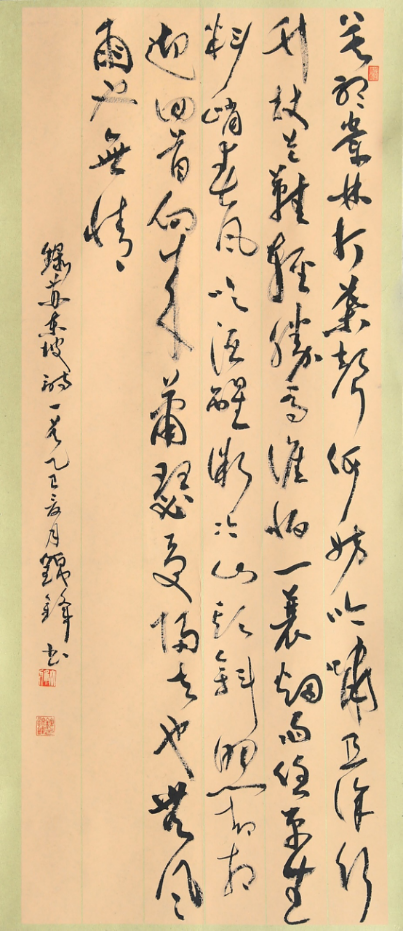 莫聽穿林打葉聲何妨吟嘯且徐行
竹杖芒鞋輕勝馬誰怕一蓑烟雨任平生
料峭春風吹酒醒微冷山頭斜照却相
迎回首向来蕭瑟處歸去也無風
雨也無情
錄苏东坡詩一首乙巳月書